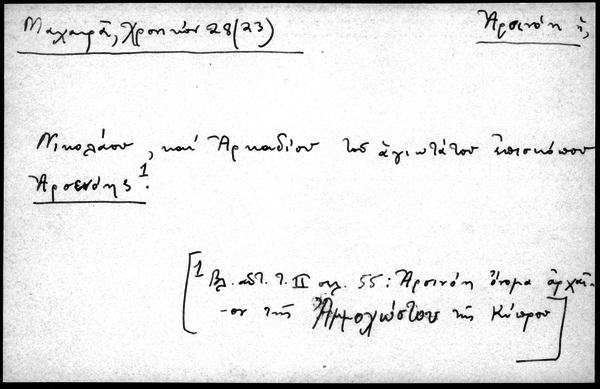 Μαχαιρᾶ, Χρονικόν 28(23)
Ἀρσινόη ἡ,
Νικολάου, καὶ Ἀρκαδίου τοῦ ἁγιωτάτου ἐπισκόπου
Ἀρσενόης¹.
[¹ Βλ. αὐτ. τ. II σελ. 55: Ἀρσινόη ὄνομα ἀρχαῖ-
-ον τῆς Ἀμμοχώστου τῆς Κύπρου]